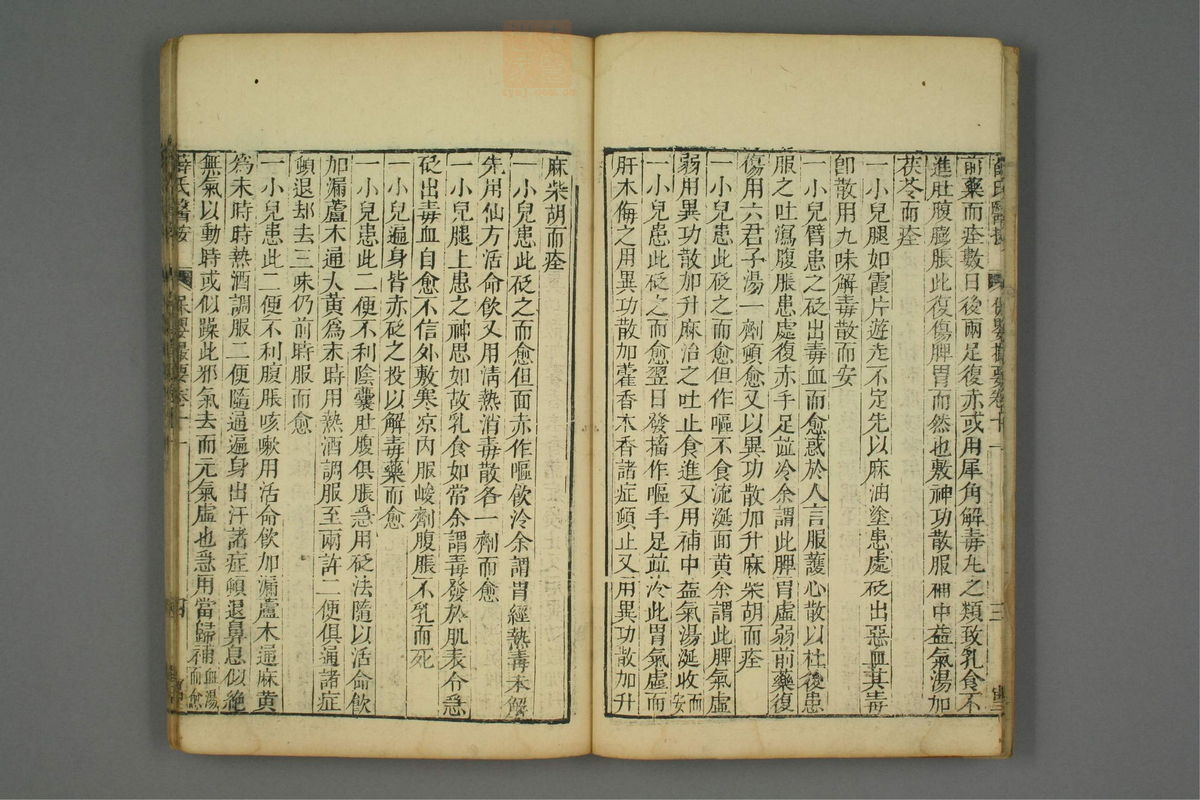 薛氏醫按 保嬰撮要卷十一 三
前藥而痊數日後兩足復赤或用犀角解毒丸之類致乳食不
進肚腹膨脹此復傷脾胃而然也敷神功散服補中益氣湯加
茯苓而痊
一小兒腿如霞片遊走不定先以麻油塗患處砭出惡血其毒
卽散用九味解毒散而安
一小兒臂患之砭出毒血而愈惑於人言服護心散以杜後患
服之吐瀉腹脹患處復赤手足並冷余謂此脾胃虛弱前藥復
傷用六君子湯一劑頓愈又以異功散加升麻柴胡而痊
一小兒患此砭之而愈但作嘔不食流涎面黃余謂此脾氣虛
弱用異功散加升麻治之吐止食進又用補中益氣湯涎收而安
一小兒患此砭之而愈翌日發搐作嘔手足並冷此胃氣虛而
肝木侮之用異功散加藿香木香諸症頓止又用異功散加升
麻柴胡而痊
一小兒患此砭之而愈但面赤作嘔飲冷余謂胃經熱毒未解
先用仙方活命飲又用淸熱消毒散各一劑而愈
一小兒腿上患之神思如故乳食如常余謂毒發於肌表令急
砭出毒血自愈不信外敷寒凉內服峻劑腹脹不乳而死
一小兒遍身皆赤砭之投以解毒藥而愈
一小兒患此二便不利陰囊肚腹俱脹急用砭法隨以活命飮
加漏蘆木通大黃爲末時用熱酒調服至兩許二便俱通諸症
頓退却去三味仍前時服而愈
一小兒患此二便不利腹脹咳嗽用活命飮加漏蘆木通麻黃
爲末時時熱酒調服二便隨通遍身出汗諸症頓退鼻息似絕
無氣以動時或似躁此邪氣去而元氣虛也急用當歸補血湯而愈
薛氏醫按 保嬰撮要卷十一